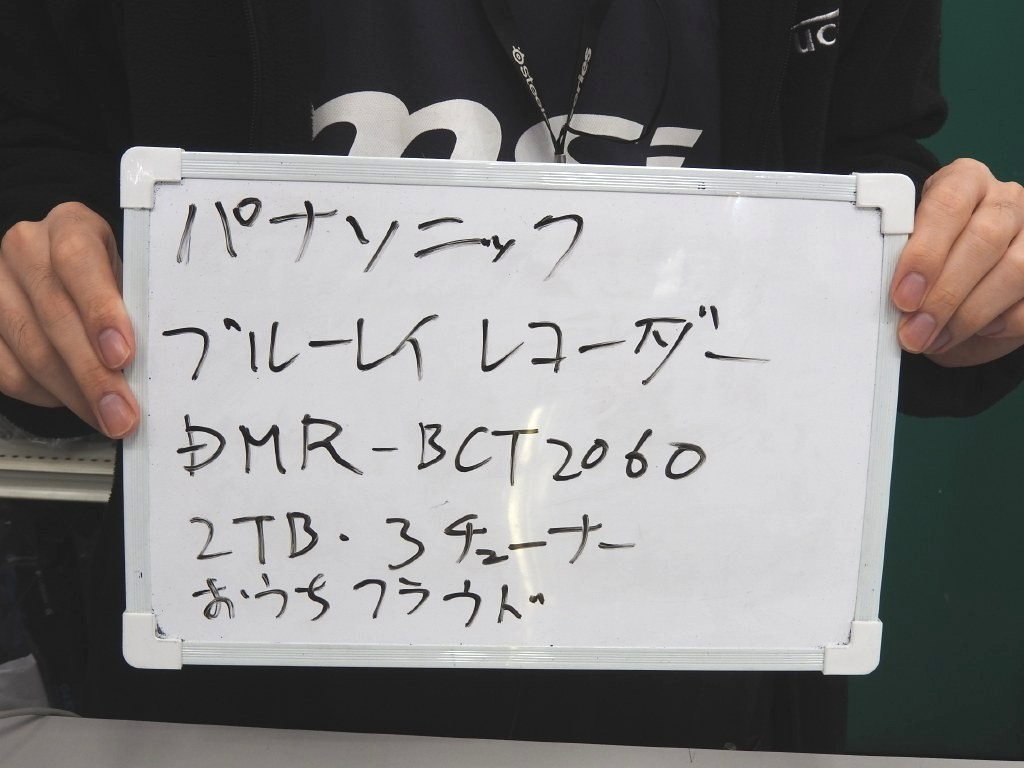 uc
msi
パナソニック
ブルーレイ レコーダー
DMR-BCT2060
2TB・3チューナー
おうちクラウド